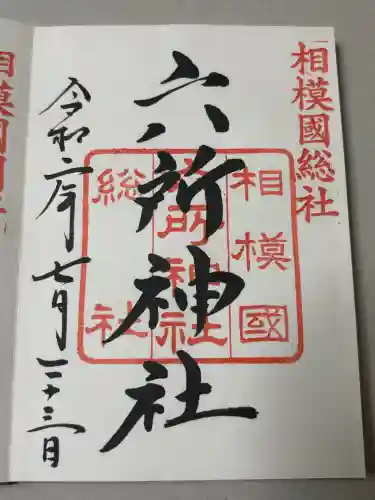 相模國総社
六所神社
相模國
六所神社
総社
令和年七月二十三日